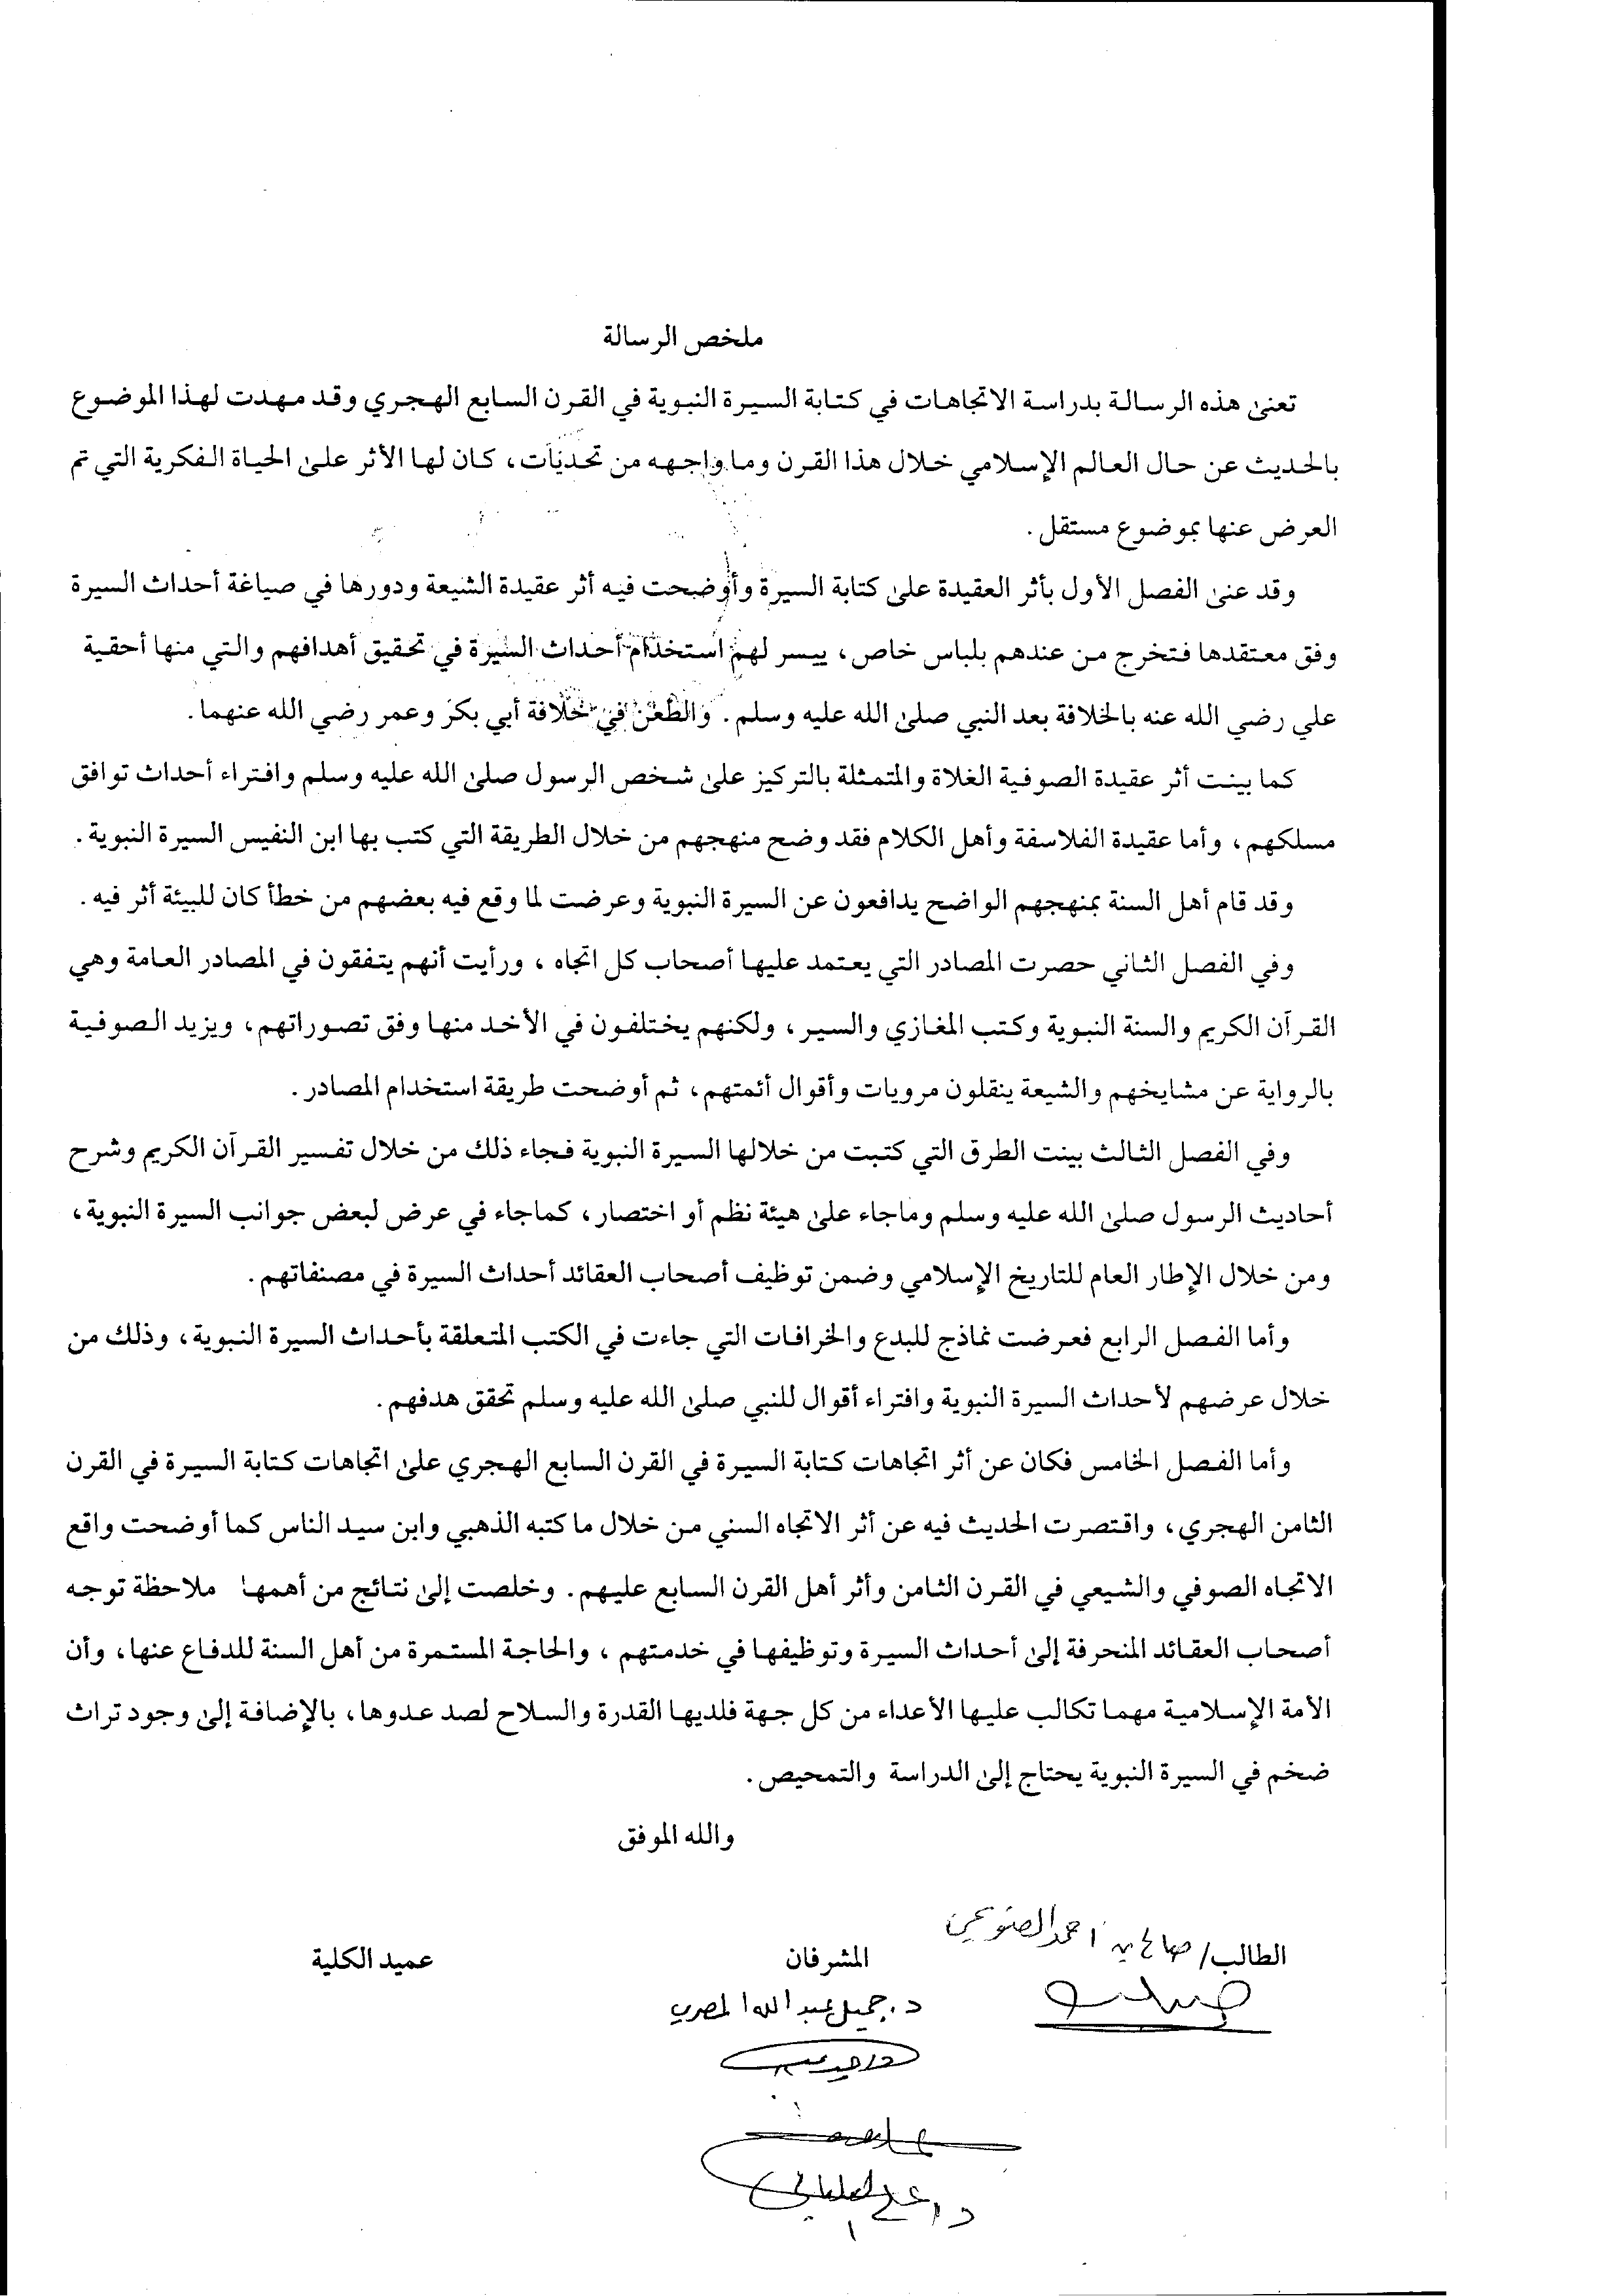 ملخص الرسالة
تعنى هذه الرسالة بدراسة الاتجاهات في كتابة السيرة النبوية في القرن السابع الهجري وقد مهدت لهذا الموضوع
بالحديث عن حال العالم الإسلامي خلال هذا القرن وما واجهه من تحديات، كان لها الأثر على الحياة الفكرية التي تم
العرض عنها بموضوع مستقل.
وقد عنى الفصل الأول بأثر العقيدة على كتابة السيرة وأوضحت فيه أثر عقيدة الشيعة ودورها في صياغة أحداث السيرة
وفق معتقدها فتخرج من عندهم بلباس خاص، ييسر لهم استخدام أحداث السيرة في تحقيق أهدافهم والتي منها أحقية
علي رضي الله عنه بالخلافة بعد النبي صلى الله عليه وسلم. والطعن في خلافة أبي بكر وعمر رضي الله عنهما.
كما بينت أثر عقيدة الصوفية الغلاة والمتمثلة بالتركيز على شخص الرسول صلى الله عليه وسلم وافتراء أحداث توافق
مسلكهم، وأما عقيدة الفلاسفة وأهل الكلام فقد وضح منهجهم من خلال الطريقة التي كتب بها ابن النفيس السيرة النبوية.
وقد قام أهل السنة بمنهجهم الواضح يدافعون عن السيرة النبوية وعرضت لما وقع فيه بعضهم من خطأ كان للبيئة أثر فيه.
وفي الفصل الثاني حصرت المصادر التي يعتمد عليها أصحاب كل اتجاه، ورأيت أنهم يتفقون في المصادر العامة وهي
القرآن الكريم والسنة النبوية وكتب المغازي والسير، ولكنهم يختلفون في الأخد منها وفق تصوراتهم، ويزيد الصوفية
بالرواية عن مشايخهم والشيعة ينقلون مرويات وأقوال أئمتهم، ثم أوضحت طريقة استخدام المصادر.
وفي الفصل الثالث بينت الطرق التي كتبت من خلالها السيرة النبوية فجاء ذلك من خلال تفسير القرآن الكريم وشرح
أحاديث الرسول صلى الله عليه وسلم وماجاء على هيئة نظم أو اختصار، كماجاء في عرض لبعض جوانب السيرة النبوية،
ومن خلال الإطار العام للتاريخ الإسلامي وضمن توظيف أصحاب العقائد أحداث السيرة في مصنفاتهم.
وأما الفصل الرابع فعرضت نماذج للبدع والخرافات التي جاءت في الكتب المتعلقة بأحداث السيرة النبوية، وذلك من
خلال عرضهم لأحداث السيرة النبوية وافتراء أقوال للنبي صلى الله عليه وسلم تحقق هدفهم.
وأما الفصل الخامس فكان عن أثر اتجاهات كتابة السيرة في القرن السابع الهجري على اتجاهات كتابة السيرة في القرن
الثامن الهجري، واقتصرت الحديث فيه عن أثر الاتجاه السني من خلال ما كتبه الذهبي وابن سيد الناس كما أوضحت واقع
الاتجاه الصوفي والشيعي في القرن الثامن وأثر أهل القرن السابع عليهم. وخلصت إلى نتائج من أهمها ملاحظة توجه
أصحاب العقائد المنحرفة إلى أحداث السيرة وتوظيفها في خدمتهم، والحاجة المستمرة من أهل السنة للدفاع عنها، وأن
الأمة الإسلامية مهما تكالب عليها الأعداء من كل جهة فلديها القدرة والسلاح لصد عدوها، بالإضافة إلى وجود تراث
ضخم في السيرة النبوية يحتاج إلى الدراسة والتمحيص.
والله الموفق
الطالب/ صالح بن احمد الضويحي
المشرفان
عميد الكلية
د. جميل عبد الله المصري